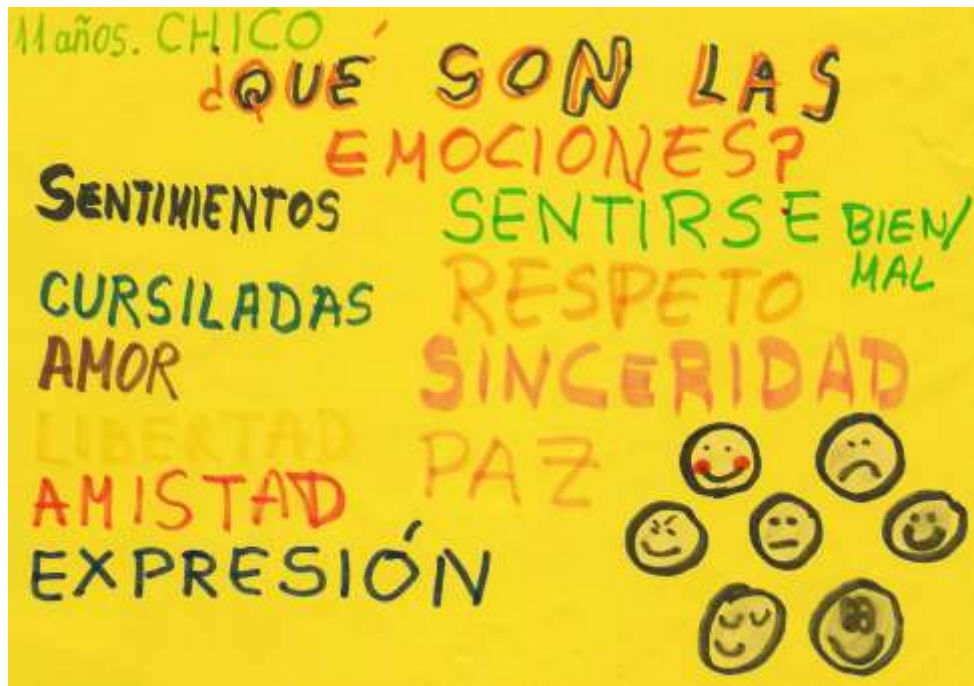 11 años. CHICO
¿QUÉ SON LAS
EMOCIONES?
SENTIMIENTOS
CURSILADAS
AMOR
LIBERTAD
AMISTAD
EXPRESIÓN
SENTIRSE BIEN/
MAL
RESPETO
SINCERIDAD
PAZ